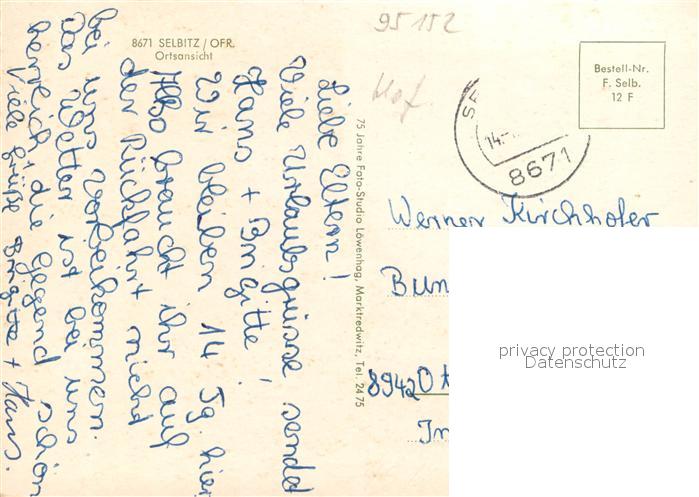 95152
8671 SELBITZ / OFR.
Ortsansicht
Hof
Bestell-Nr.
F. Selb.
12 F
14.-
8671
75 Jahre Foto-Studio Löwenhag, Marktredwitz, Tel. 2475
Liebe Eltern!
Viele Urlaubsgrüsse sendet
Hans + Brigitte!
Wir bleiben 14 Tg. hier
Also braucht ihr auf
der Rückfahrt nicht
bei uns vorbeikommen.
Das Wetter ist bei uns
herrlich + die Gegend schön
Viele Grüße Brigitte + Hans.
Werner Kirchhofer
Bun
8942 Ot
In
privacy protection
Datenschutz